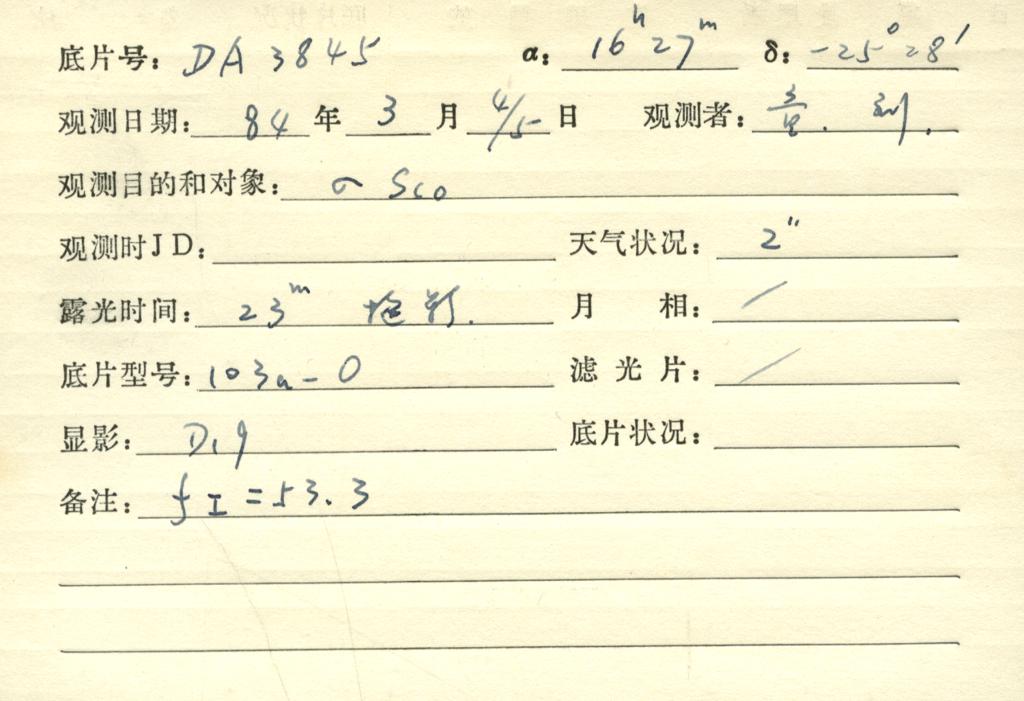 底片号: DA 3845 α: 16ʰ27ᵐ δ: -25°28′
观测日期: 84 年 3 月 4/5 日 观测者: 童. 刘.
观测目的和对象: σ Sco
观测时JD: 天气状况: 2″
露光时间: 23ᵐ 月 相: /
底片型号: 103a-O 滤光片: /
显影: D19 底片状况:
备注: f I = 53.3